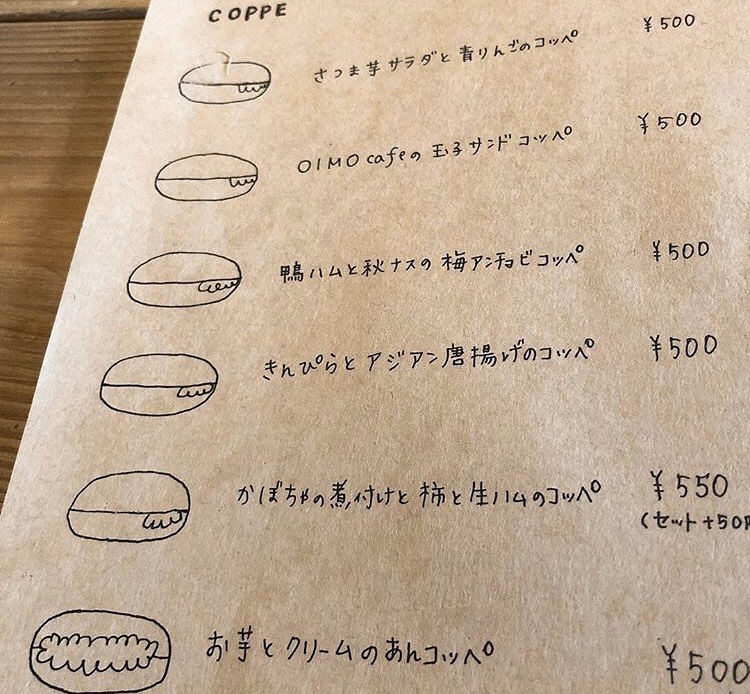 COPPE
さつま芋サラダと青りんごのコッペ ¥500
OIMO cafeの玉子サンドコッペ ¥500
鴨ハムと秋ナスの梅アンチョビコッペ ¥500
きんぴらとアジアン唐揚げのコッペ ¥500
かぼちゃの煮付けと柿と生ハムのコッペ ¥550
(セット+50円
お芋とクリームのあんコッペ ¥500